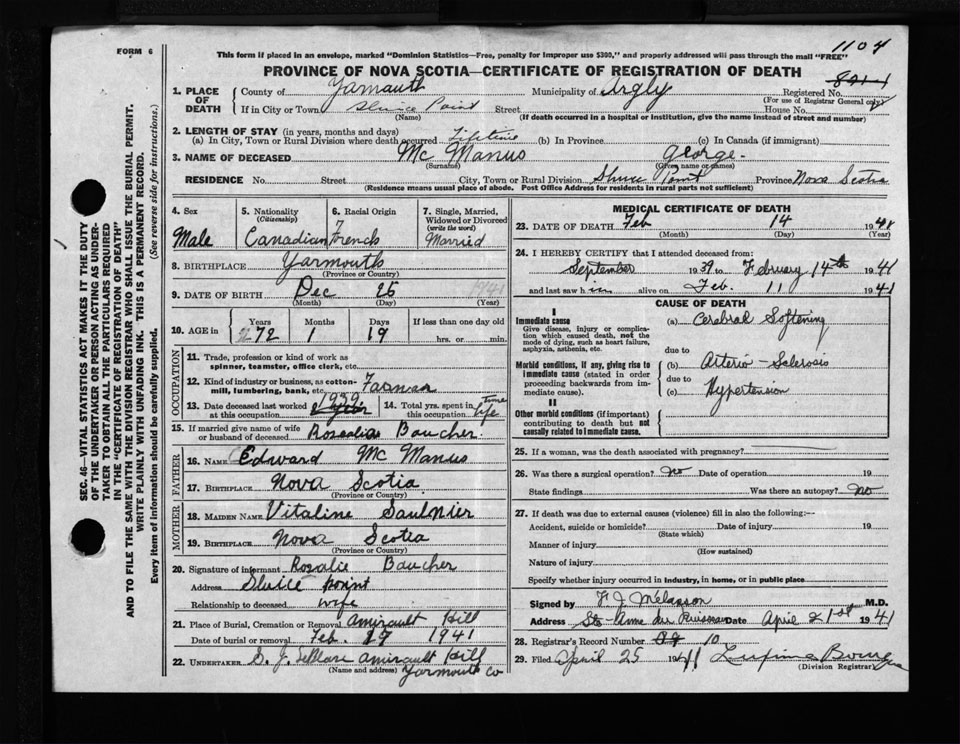 FORM 6
1104
This form if placed in an envelope, marked "Dominion Statistics—Free, penalty for improper use $300," and properly addressed will pass through the mail "FREE"
PROVINCE OF NOVA SCOTIA—CERTIFICATE OF REGISTRATION OF DEATH
1. PLACE OF DEATH
County of Yarmouth Municipality of Argly Registered No.
(For use of Registrar General only)
If in City or Town Sluice Point Street House No.
(Name) (If death occurred in a hospital or institution, give the name instead of street and number)
2. LENGTH OF STAY (in years, months and days)
(a) In City, Town or Rural Division where death occurred Lifetime (b) In Province (c) In Canada (if immigrant)
3. NAME OF DECEASED Mc Manus George.
(Surname) (Given name or names)
RESIDENCE No. Street City, Town or Rural Division Point Province Nova Scotia
(Residence means usual place of abode. Post Office Address for residents in rural parts not sufficient)
SEC. 46—VITAL STATISTICS ACT MAKES IT THE DUTY
OF THE UNDERTAKER OR PERSON ACTING AS UNDER-
TAKER TO OBTAIN ALL THE PARTICULARS REQUIRED
IN THE "CERTIFICATE OF REGISTRATION OF DEATH"
AND TO FILE THE SAME WITH THE DIVISION REGISTRAR WHO SHALL ISSUE THE BURIAL PERMIT.
WRITE PLAINLY WITH UNFADING INK. THIS IS A PERMANENT RECORD.
Every item of information should be carefully supplied. (See reverse side for instructions.)
4. Sex
Male
5. Nationality
(Citizenship)
Canadian
6. Racial Origin
French
7. Single, Married,
Widowed or Divorced
(write the word)
Married
8. BIRTHPLACE Yarmouth
(Province or Country)
9. DATE OF BIRTH Dec 25 1941
(Month) (Day) (Year)
10. AGE in
Years Months Days If less than one day old
72 1 19 hrs. or min.
OCCUPATION
11. Trade, profession or kind of work as
spinner, teamster, office clerk, etc.
12. Kind of industry or business, as cotton-
mill, lumbering, bank, etc. Farmer
13. Date deceased last worked
at this occupation 1939
14. Total yrs. spent in
this occupation life time
15. If married give name of wife
or husband of deceased Rosalia Boucher.
FATHER
16. NAME Edward Mc Manus
17. BIRTHPLACE Nova Scotia
(Province or Country)
MOTHER
18. MAIDEN NAME Vitaline Saulnier
19. BIRTHPLACE Nova Scotia
(Province or Country)
20. Signature of informant Rosalie Boucher
Address Sluice point
Relationship to deceased wife
21. Place of Burial, Cremation or Removal Amirault Hill
Date of burial or removal Feb. 17 1941
22. UNDERTAKER S. J. Amirault Hill
(Name and address) Yarmouth Co
MEDICAL CERTIFICATE OF DEATH
23. DATE OF DEATH Feb 14 19
(Month) (Day) (Year)
24. I HEREBY CERTIFY that I attended deceased from:
September 1939 to February 14th 1941
and last saw h im alive on Feb. 11 1941
CAUSE OF DEATH
I
Immediate cause
Give disease, injury or complica-
tion which caused death, not the
mode of dying, such as heart failure,
asphyxia, asthenia, etc.
(a) Cerebral Softening
due to
Morbid conditions, if any, giving rise to
immediate cause (stated in order
proceeding backwards from im-
mediate cause).
(b) Arterio-Sclerosis
due to
(c) Hypertension
II
Other morbid conditions (if important)
contributing to death but not
causally related to immediate cause.
25. If a woman, was the death associated with pregnancy?
26. Was there a surgical operation? no Date of operation 19
State findings Was there an autopsy? no
27. If death was due to external causes (violence) fill in also the following:—
Accident, suicide or homicide? Date of injury 19
(State which)
Manner of injury
(How sustained)
Nature of injury
Specify whether injury occurred in industry, in home, or in public place
Signed by F. J. Melanson M.D.
Address Ste-Anne du Ruisseau Date April 21st 1941
28. Registrar's Record Number 10
29. Filed April 25 1941
(Division Registrar)